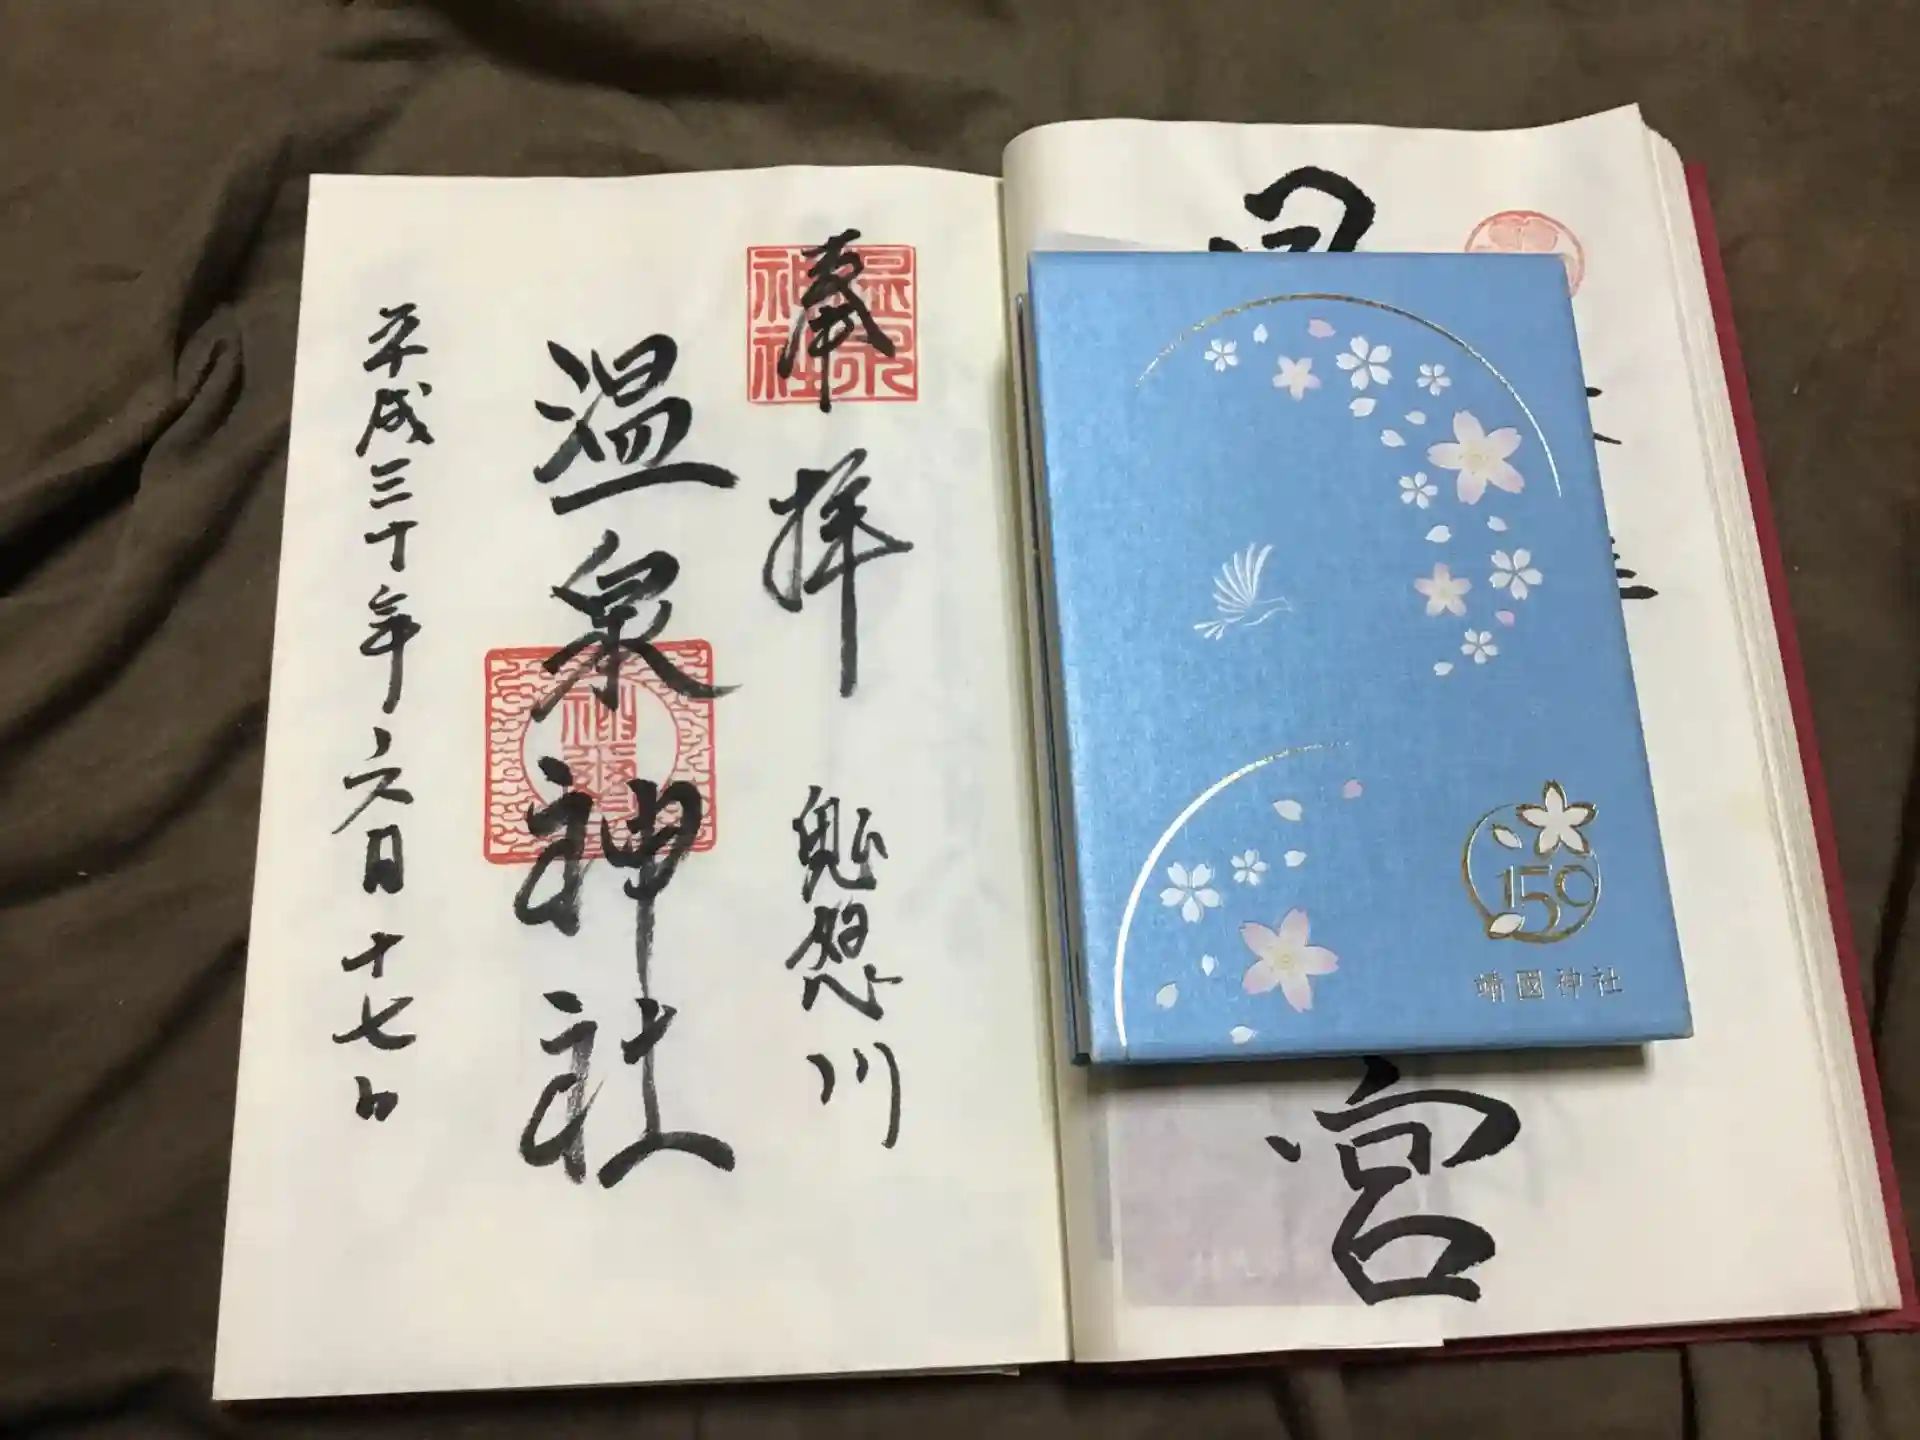 宮
159
靖國神社
奉拝
鬼怒川
温泉神社
温泉神社
平成三十年六月十七日